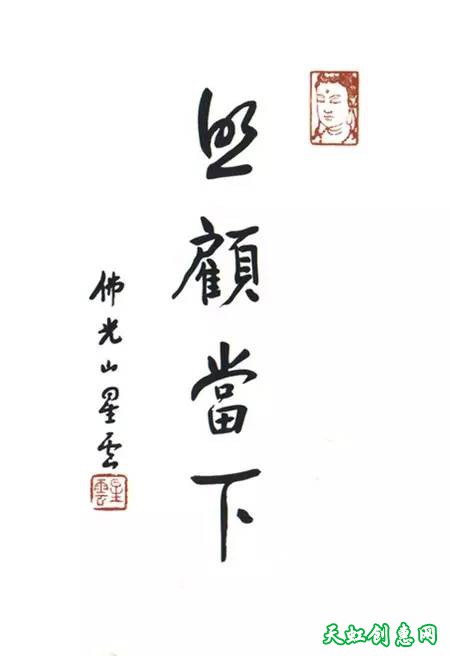 照顧當下
佛光山星雲
星雲
天虹创惠网